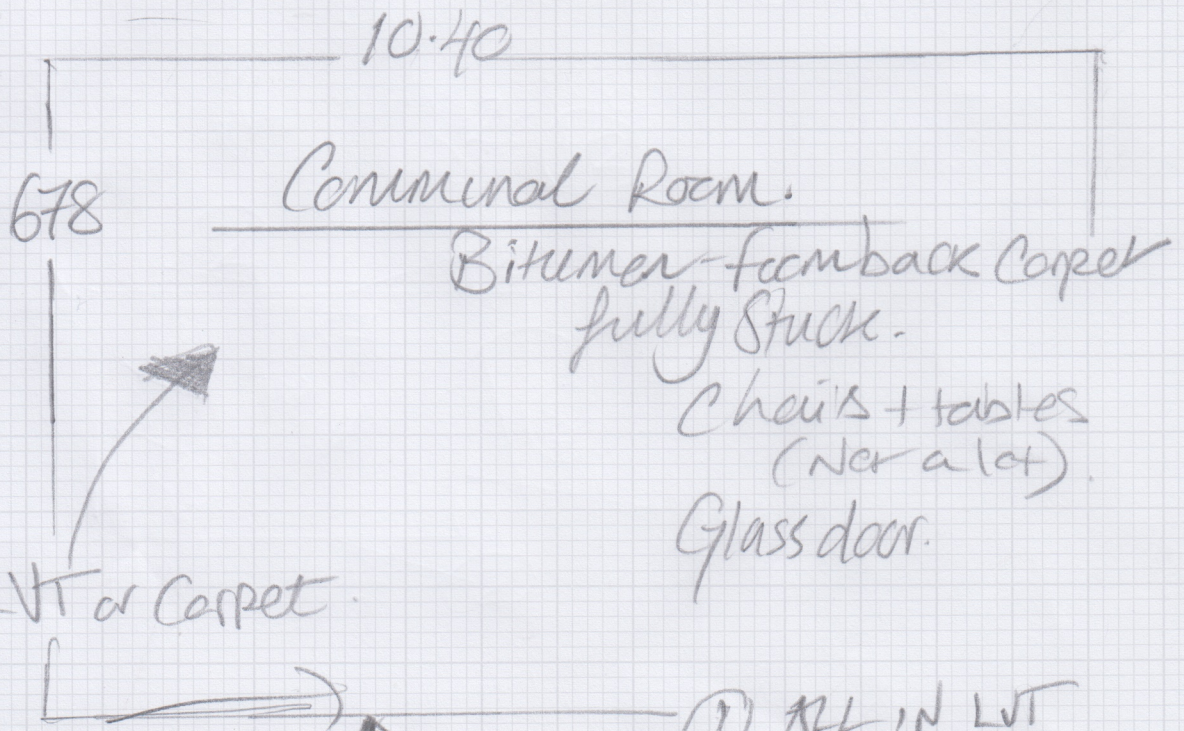 10.40
678
Communal Room.
Bitumen-foamback Carpet
fully Stuck.
Chairs + tables
(Not a lot).
Glass door.
VT or Carpet.
① ALL IN LVT